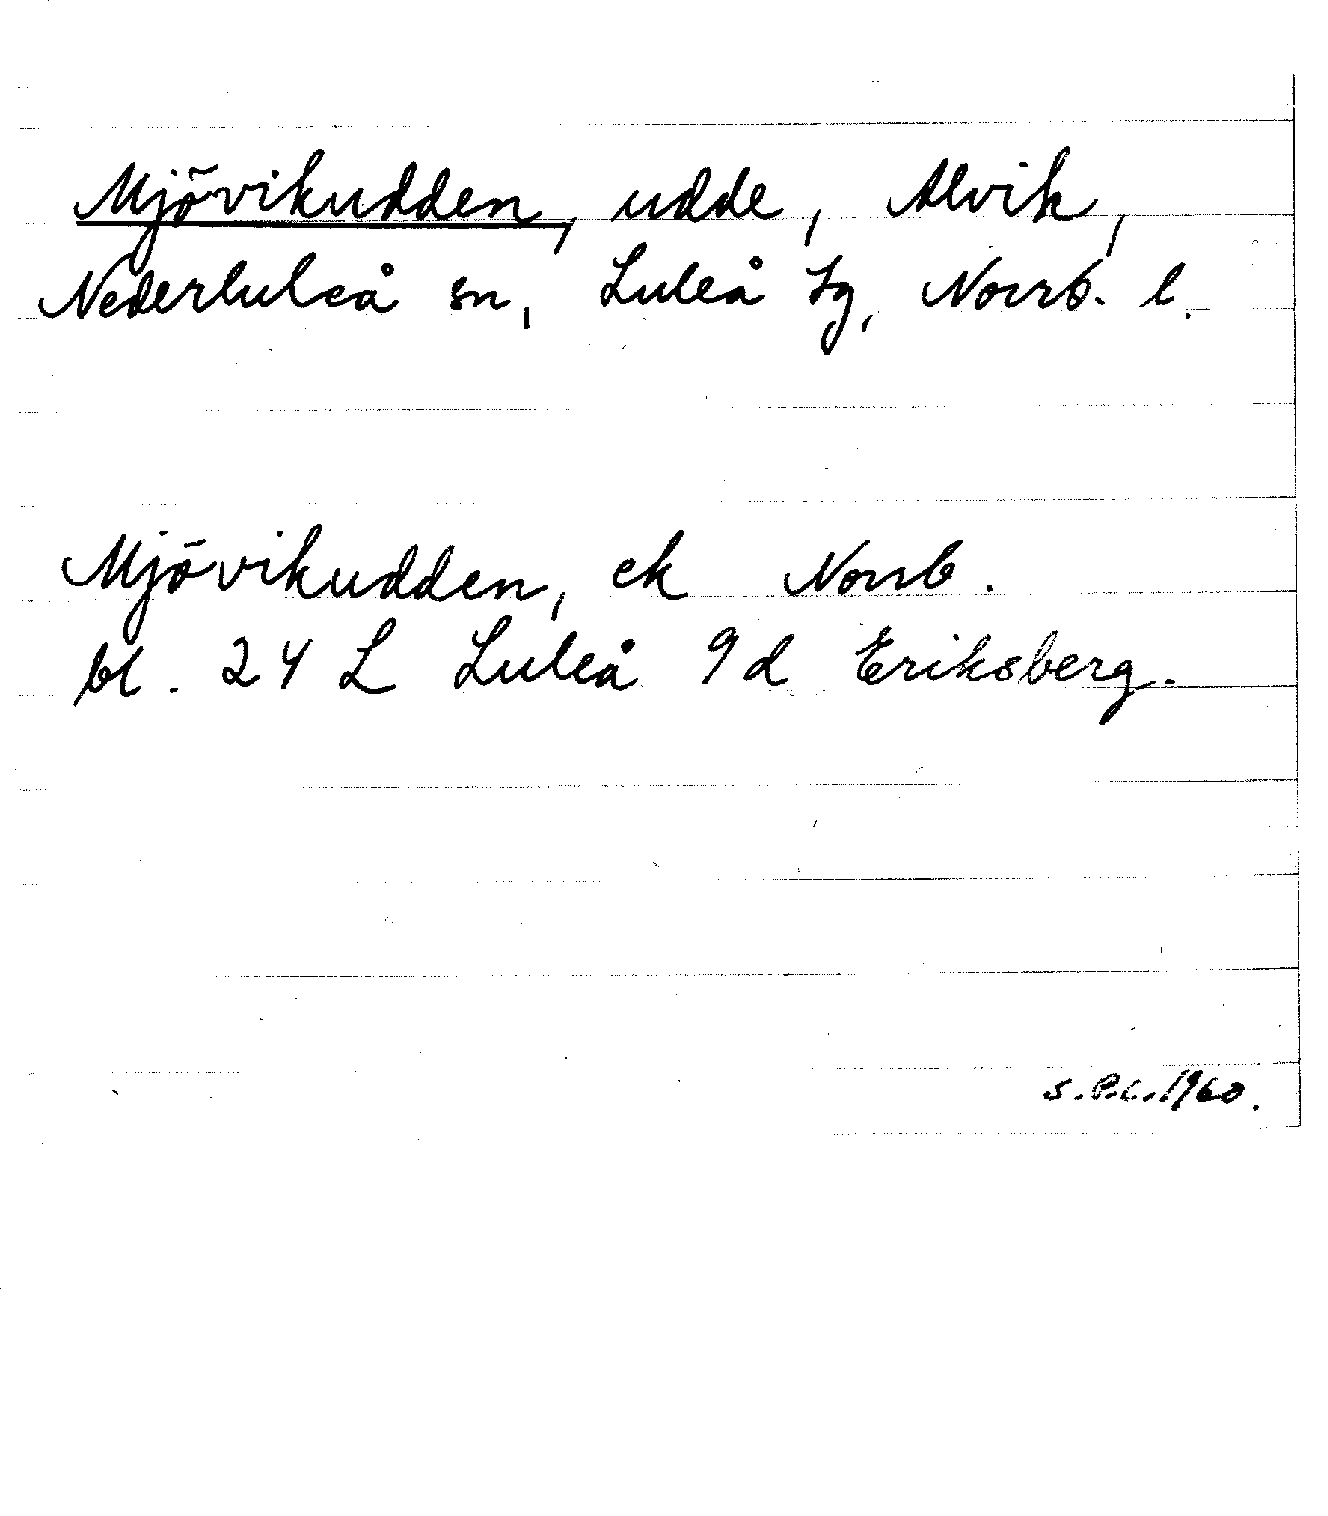 Mjövikudden, udde, Alvik,
Nederluleå sn, Luleå tg, Norrb. l.
Mjövikudden, ek Norrb.
bl. 24 L Luleå 9d Eriksberg.
S.P.C. 1960.